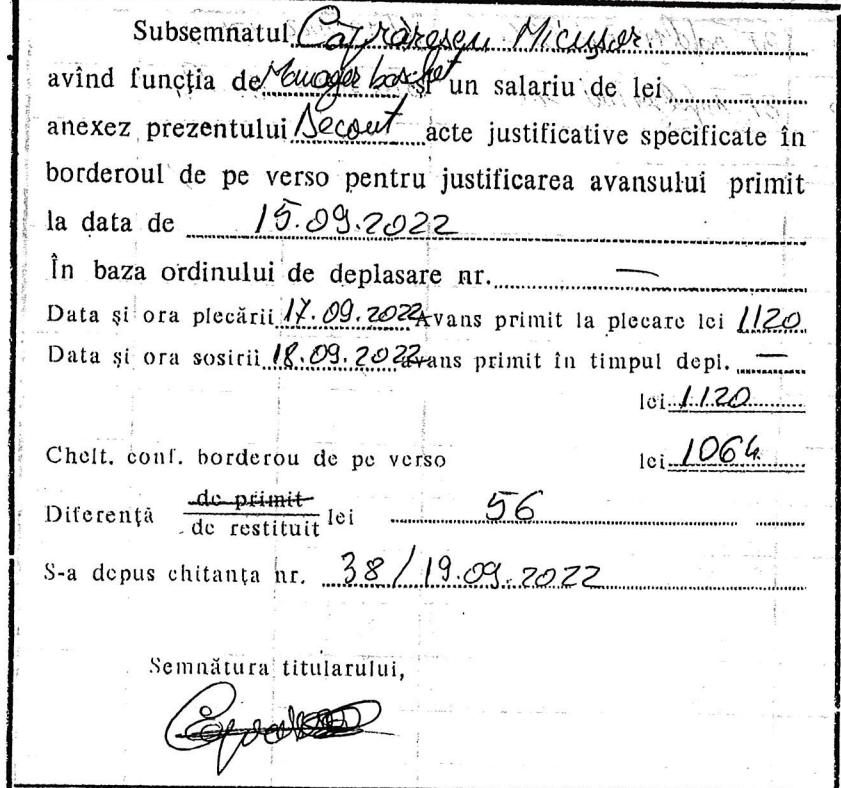 Subsemnatul Căprărescu Micușor
avînd funcția de Manager baschet și un salariu de lei
anexez prezentului Decont acte justificative specificate în
borderoul de pe verso pentru justificarea avansului primit
la data de 15.09.2022
În baza ordinului de deplasare nr. —
Data și ora plecării 17.09.2022 Avans primit la plecare lei 1120
Data și ora sosirii 18.09.2022 avans primit în timpul depl. —
lei 1120
Chelt. conf. borderou de pe verso lei 1064
Diferență de primit
de restituit lei 56
S-a depus chitanța nr. 38/19.09.2022
Semnătura titularului,